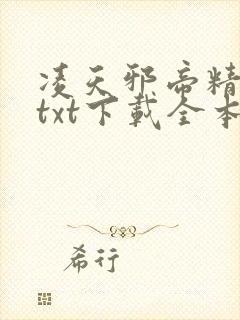 凌天邪帝精
txt下载全本
希行